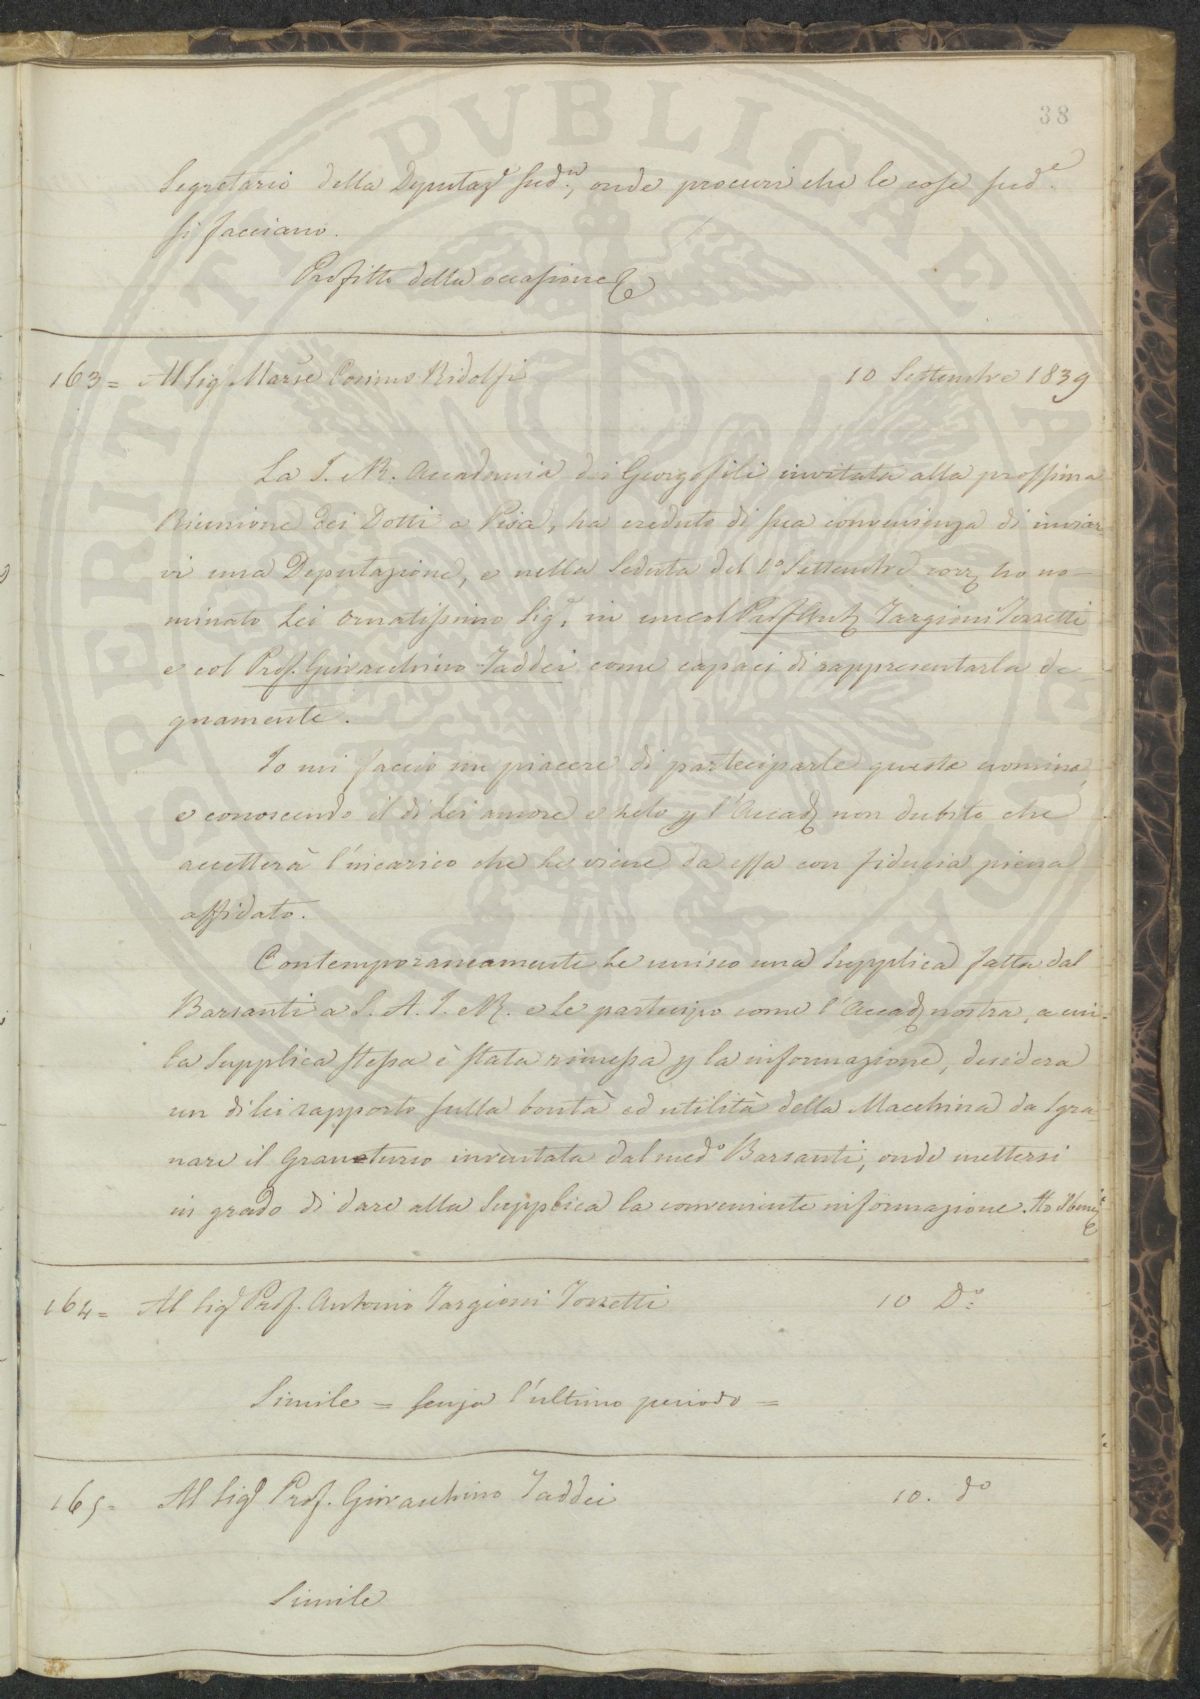 38
Segretario della Deputaz.e sud.a, onde procuri che le cose sud.e
si facciano.
Profitto della occasione &
163= Al Sig.r March.e Cosimo Ridolfi 10 Settembre 1839
La I. e R. Accademia dei Georgofili invitata alla prossima
Riunione dei Dotti a Pisa, ha creduto di sua convenienza di inviar-
vi una Deputazione, e nella Seduta del 1.o Settembre corr.e ha no-
minato Lei ornatissimo Sig.r, in un col Prof. Ant.o Targioni Tozzetti
e col Prof. Giovacchino Taddei come capaci di rappresentarla de
gnamente.
Io mi faccio un piacere di parteciparle questa nomina,
e conoscendo il di Lei amore e zelo p l'Accad.a non dubito che
accetterà l'incarico che Le viene da essa con fiducia piena
affidato.
Contemporaneamente Le unisco una Supplica fatta dal
Barsanti a S. A. I. e R. e Le partecipo come l'Accad.a nostra, a cui
la Supplica stessa è stata rimessa p la informazione, desidera
un di lei rapporto sulla bontà ed utilità della Macchina da sgra-
nare il Granoturco inventata dal med.o Barsanti, onde mettersi
in grado di dare alla Supplica la conveniente informazione. Ho
164= Al Sig.r Prof. Antonio Targioni Tozzetti 10 D.o
Simile = senza l'ultimo periodo =
165= Al Sig.r Prof. Giovacchino Taddei 10. d.o
Simile
PVBLICAE